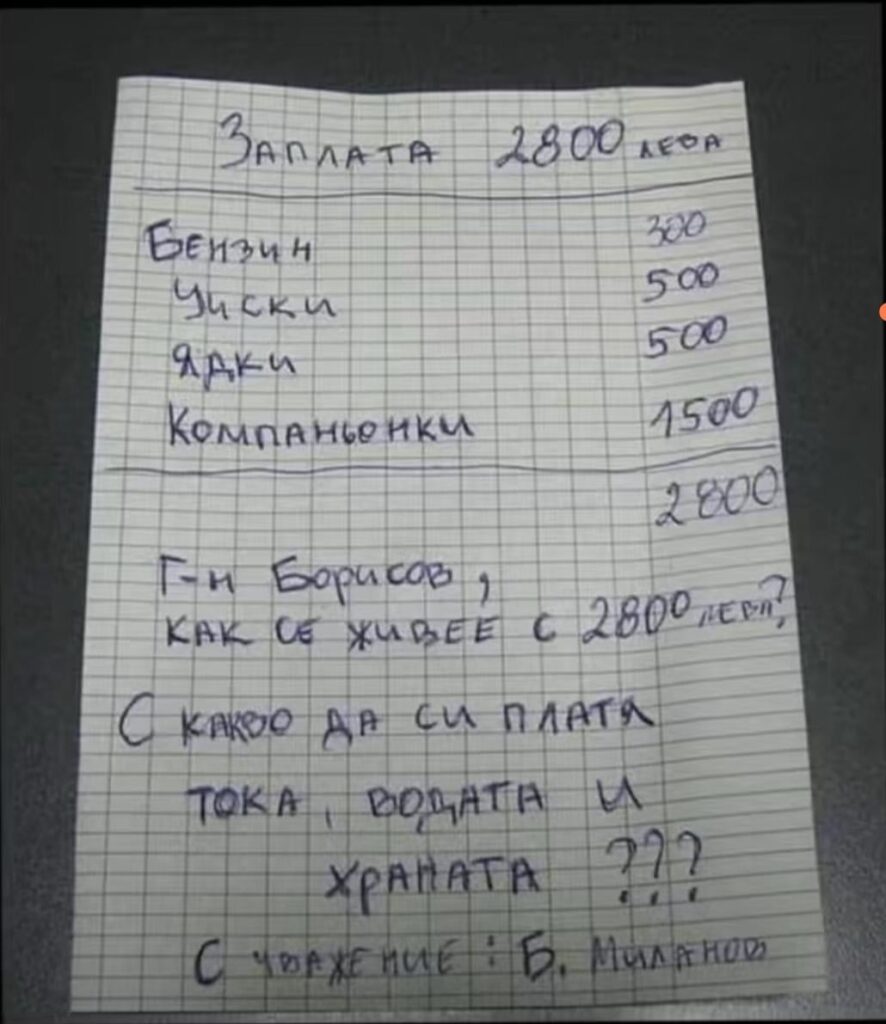 Заплата 2800 лева
Бензин 300
Уиски 500
Ядки 500
Компаньонки 1500
2800
Г-н Борисов,
как се живее с 2800 лева?
С какво да си платя
тока, водата и
храната ???
С уважение: Б. Миланов